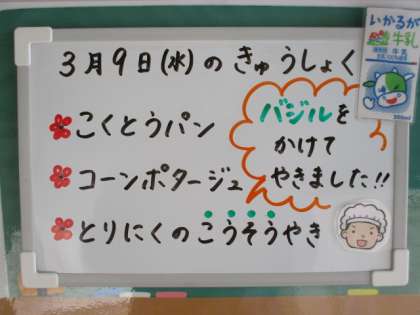 3月9日(水)のきゅうしょく
こくとうパン
コーンポタージュ
とりにくのこうそうやき
バジルを
かけて
やきました!!
いかるが
牛乳